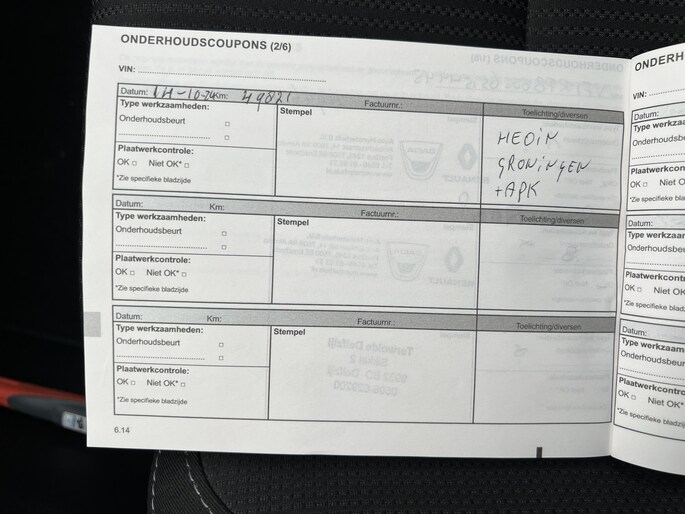 ONDERHOUDSCOUPONS (2/6)
VIN:
Datum: 14-10-24 Km: 49821 Factuurnr.: Toelichting/diversen
Type werkzaamheden: Stempel
Onderhoudsbeurt
Plaatwerkcontrole:
OK Niet OK*
*Zie specifieke bladzijde
HEDIN
GRONINGEN
+APK
Datum: Km: Factuurnr.: Toelichting/diversen
Type werkzaamheden: Stempel
Onderhoudsbeurt
Plaatwerkcontrole:
OK Niet OK*
*Zie specifieke bladzijde
Datum: Km: Factuurnr.: Toelichting/diversen
Type werkzaamheden: Stempel
Onderhoudsbeurt
Plaatwerkcontrole:
OK Niet OK*
*Zie specifieke bladzijde
6.14
ONDERH
VIN:
Datum:
Type werkzaa
Onderhoudsb
Plaatwerkcont
OK Niet O
*Zie specifieke b
Datum:
Type werkzaar
Onderhoudsbeu
Plaatwerkcontr
OK Niet OK
*Zie specifieke blad
Datum:
Type werkzaam
Onderhoudsbeurt
Plaatwerkcontro
OK Niet OK*
*Zie specifieke bladz